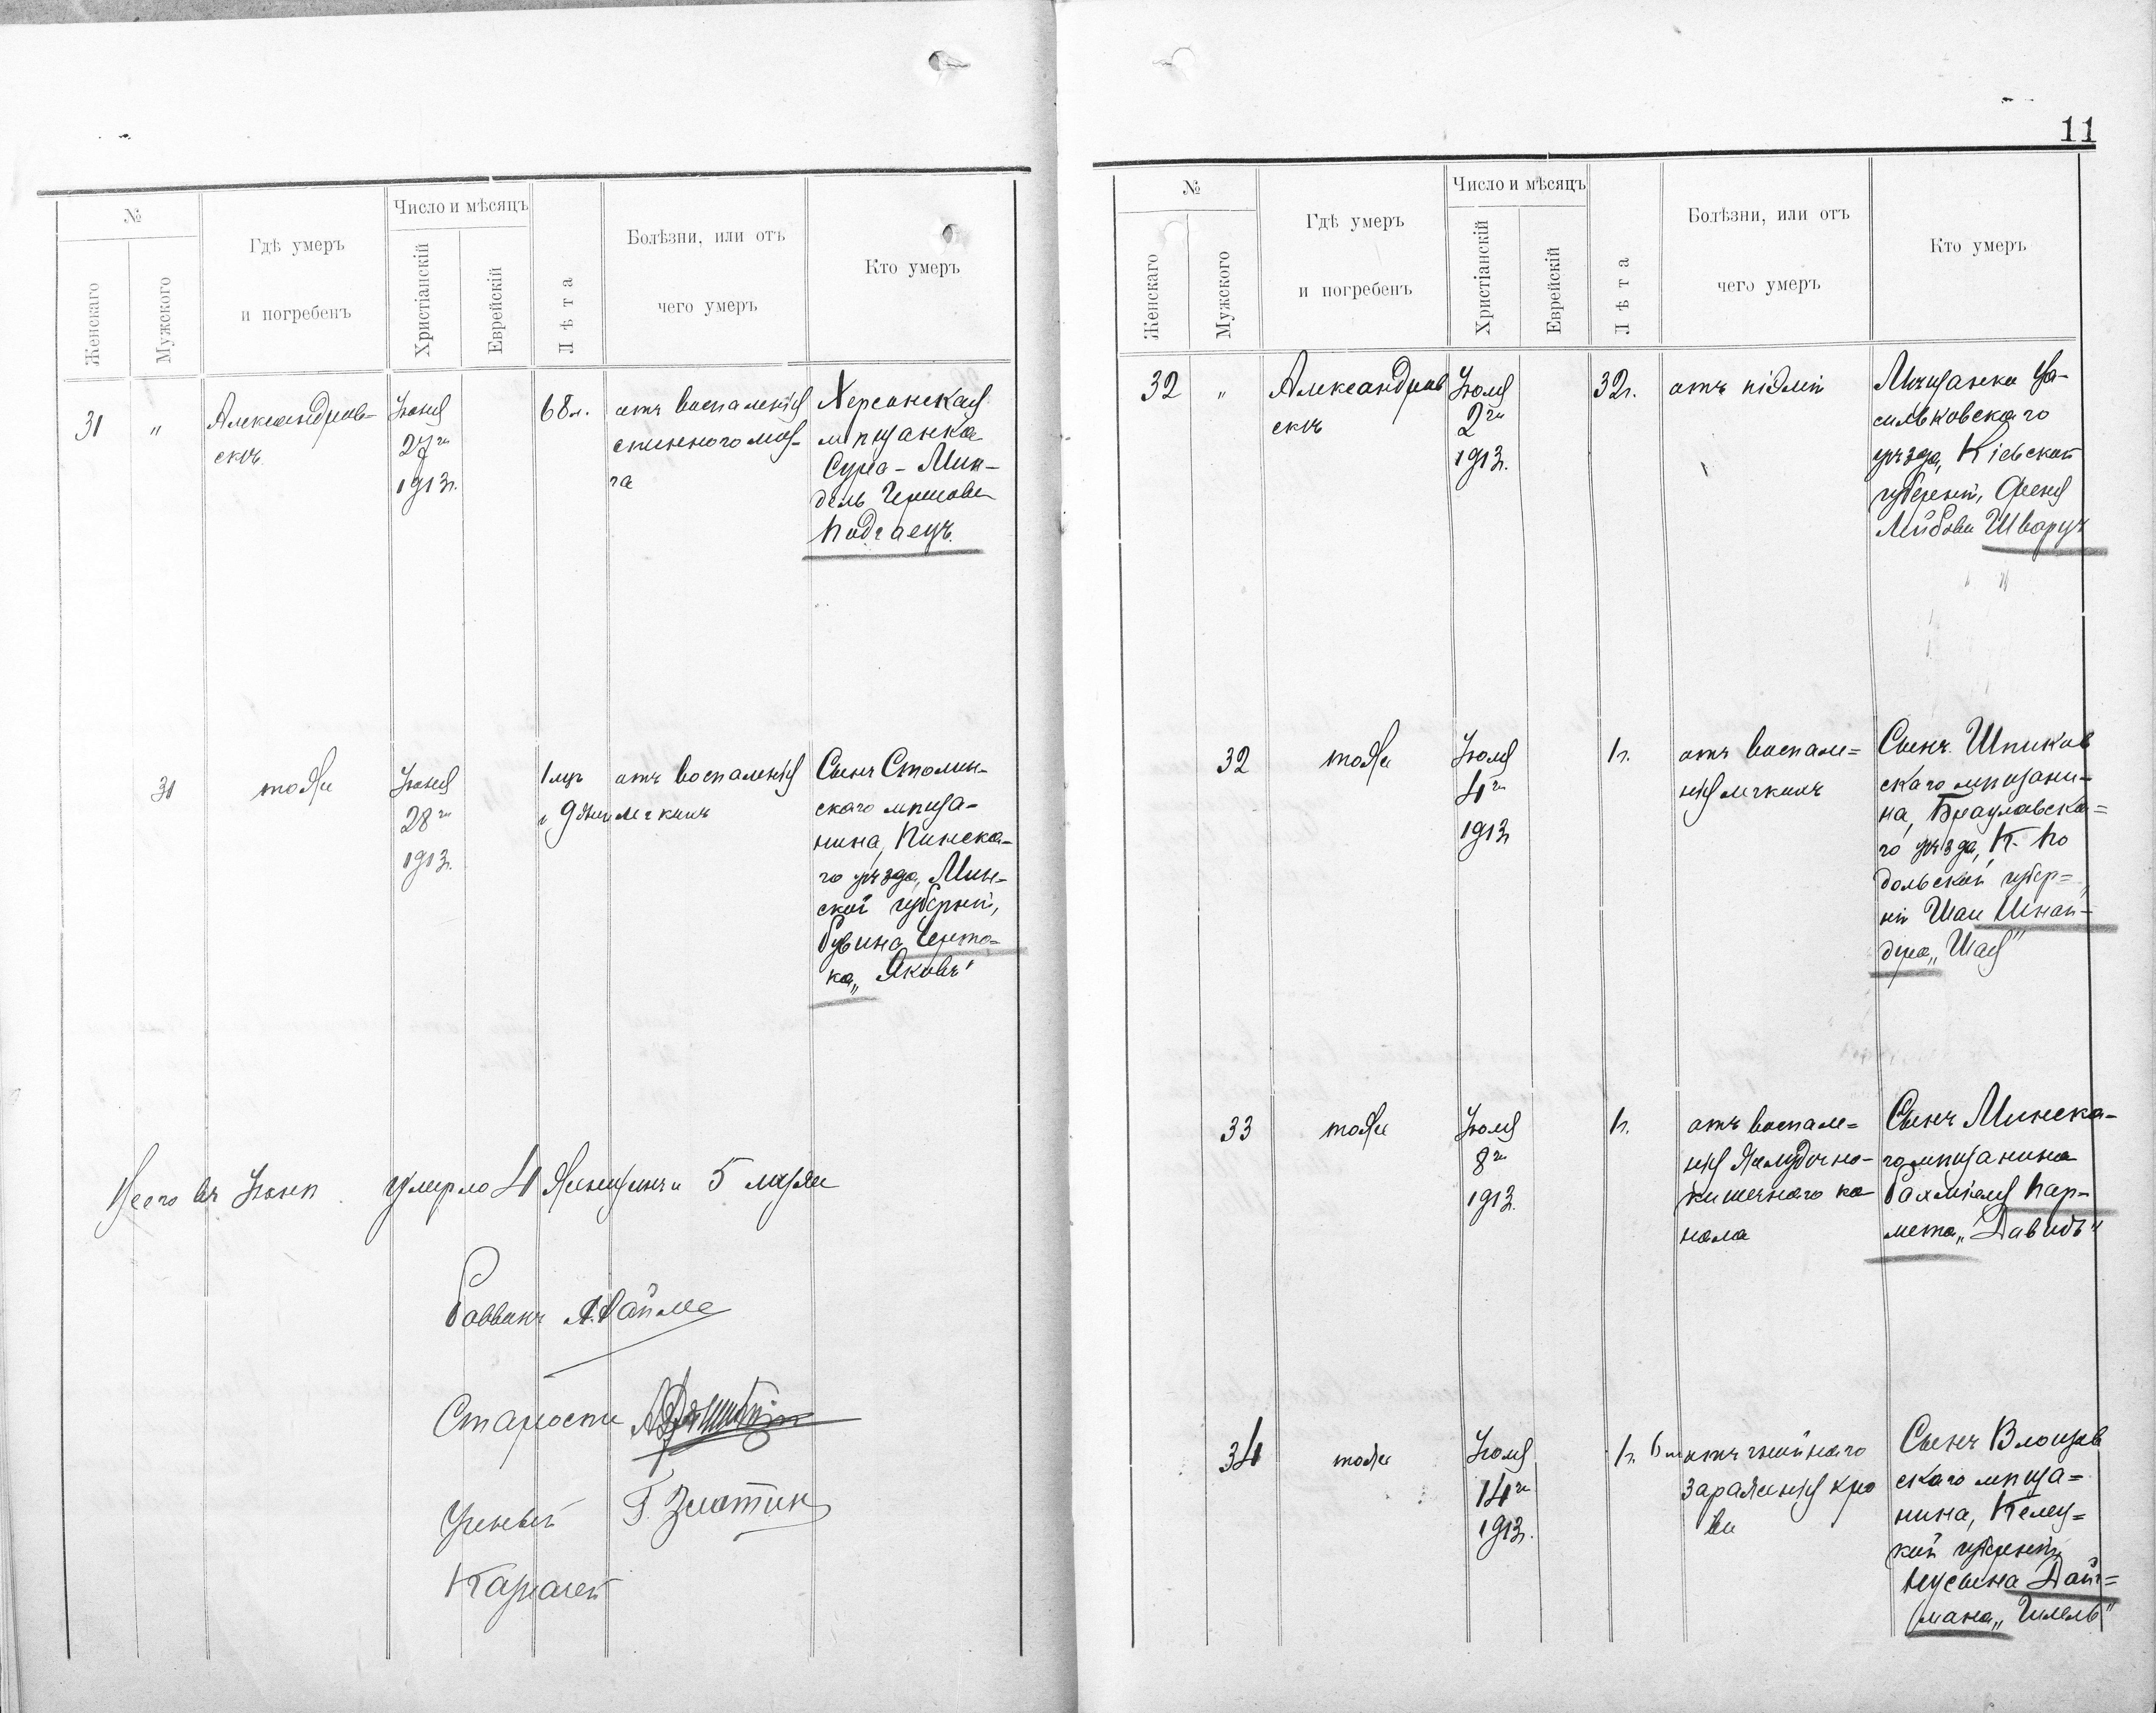 11
№
Женскаго
Мужского
Гдѣ умеръ
и погребенъ
Число и мѣсяцъ
Христіанскій
Еврейскій
Лѣта
Болѣзни, или отъ
чего умеръ
Кто умеръ
31 "
Александров-
скъ
Іюня
27го
1913г.
68л.
отъ воспаленія
спинного моз-
га
Херсонская
мѣщанка
Сура-Мин-
дель Гершова
Подгаецъ.
31
тоже
Іюня
28го
1913г.
1 мѣс
и 9 дней
отъ воспаленія
легкихъ
Сынъ Столин-
скаго мѣща-
нина, Пинска-
го уѣзда, Мин-
ской губерніи,
Рувина Черто-
ка „Яковъ"
Всего въ Іюнѣ умерло 4 женщинъ и 5 мужч
Раввинъ
Старосты
Ученый Г. Златин
Казначей
№
Женскаго
Мужского
Гдѣ умеръ
и погребенъ
Число и мѣсяцъ
Христіанскій
Еврейскій
Лѣта
Болѣзни, или отъ
чего умеръ
Кто умеръ
32 "
Александров
скъ
Іюля
2го
1913г.
32г.
отъ піэміи
Мѣщанка Ва-
сильковскаго
уѣзда, Кіевской
губерніи,
Лейбова Шварцъ
32
тоже
Іюля
4го
1913г
1г.
отъ воспале=
нія легкихъ
Сынъ Шпиков
скаго мѣщани-
на, Брацлавска=
го уѣзда, К. По
дольской губер=
ніи Шаи Шнай-
дера „Шая"
33
тоже
Іюля
8го
1913г.
1г.
отъ воспале=
нія желудочно-
кишечнаго ка
нала
Сынъ Минска-
го мѣщанина
Рахміеля Пар-
мета „Давидъ"
34
тоже
Іюля
14го
1913г.
1г. 6 м
отъ гнойнаго
зараженія кро
ви
Сынъ Влощов
скаго мѣща=
нина, Келец=
кой губерніи
Дайч=
мана „Гилель"